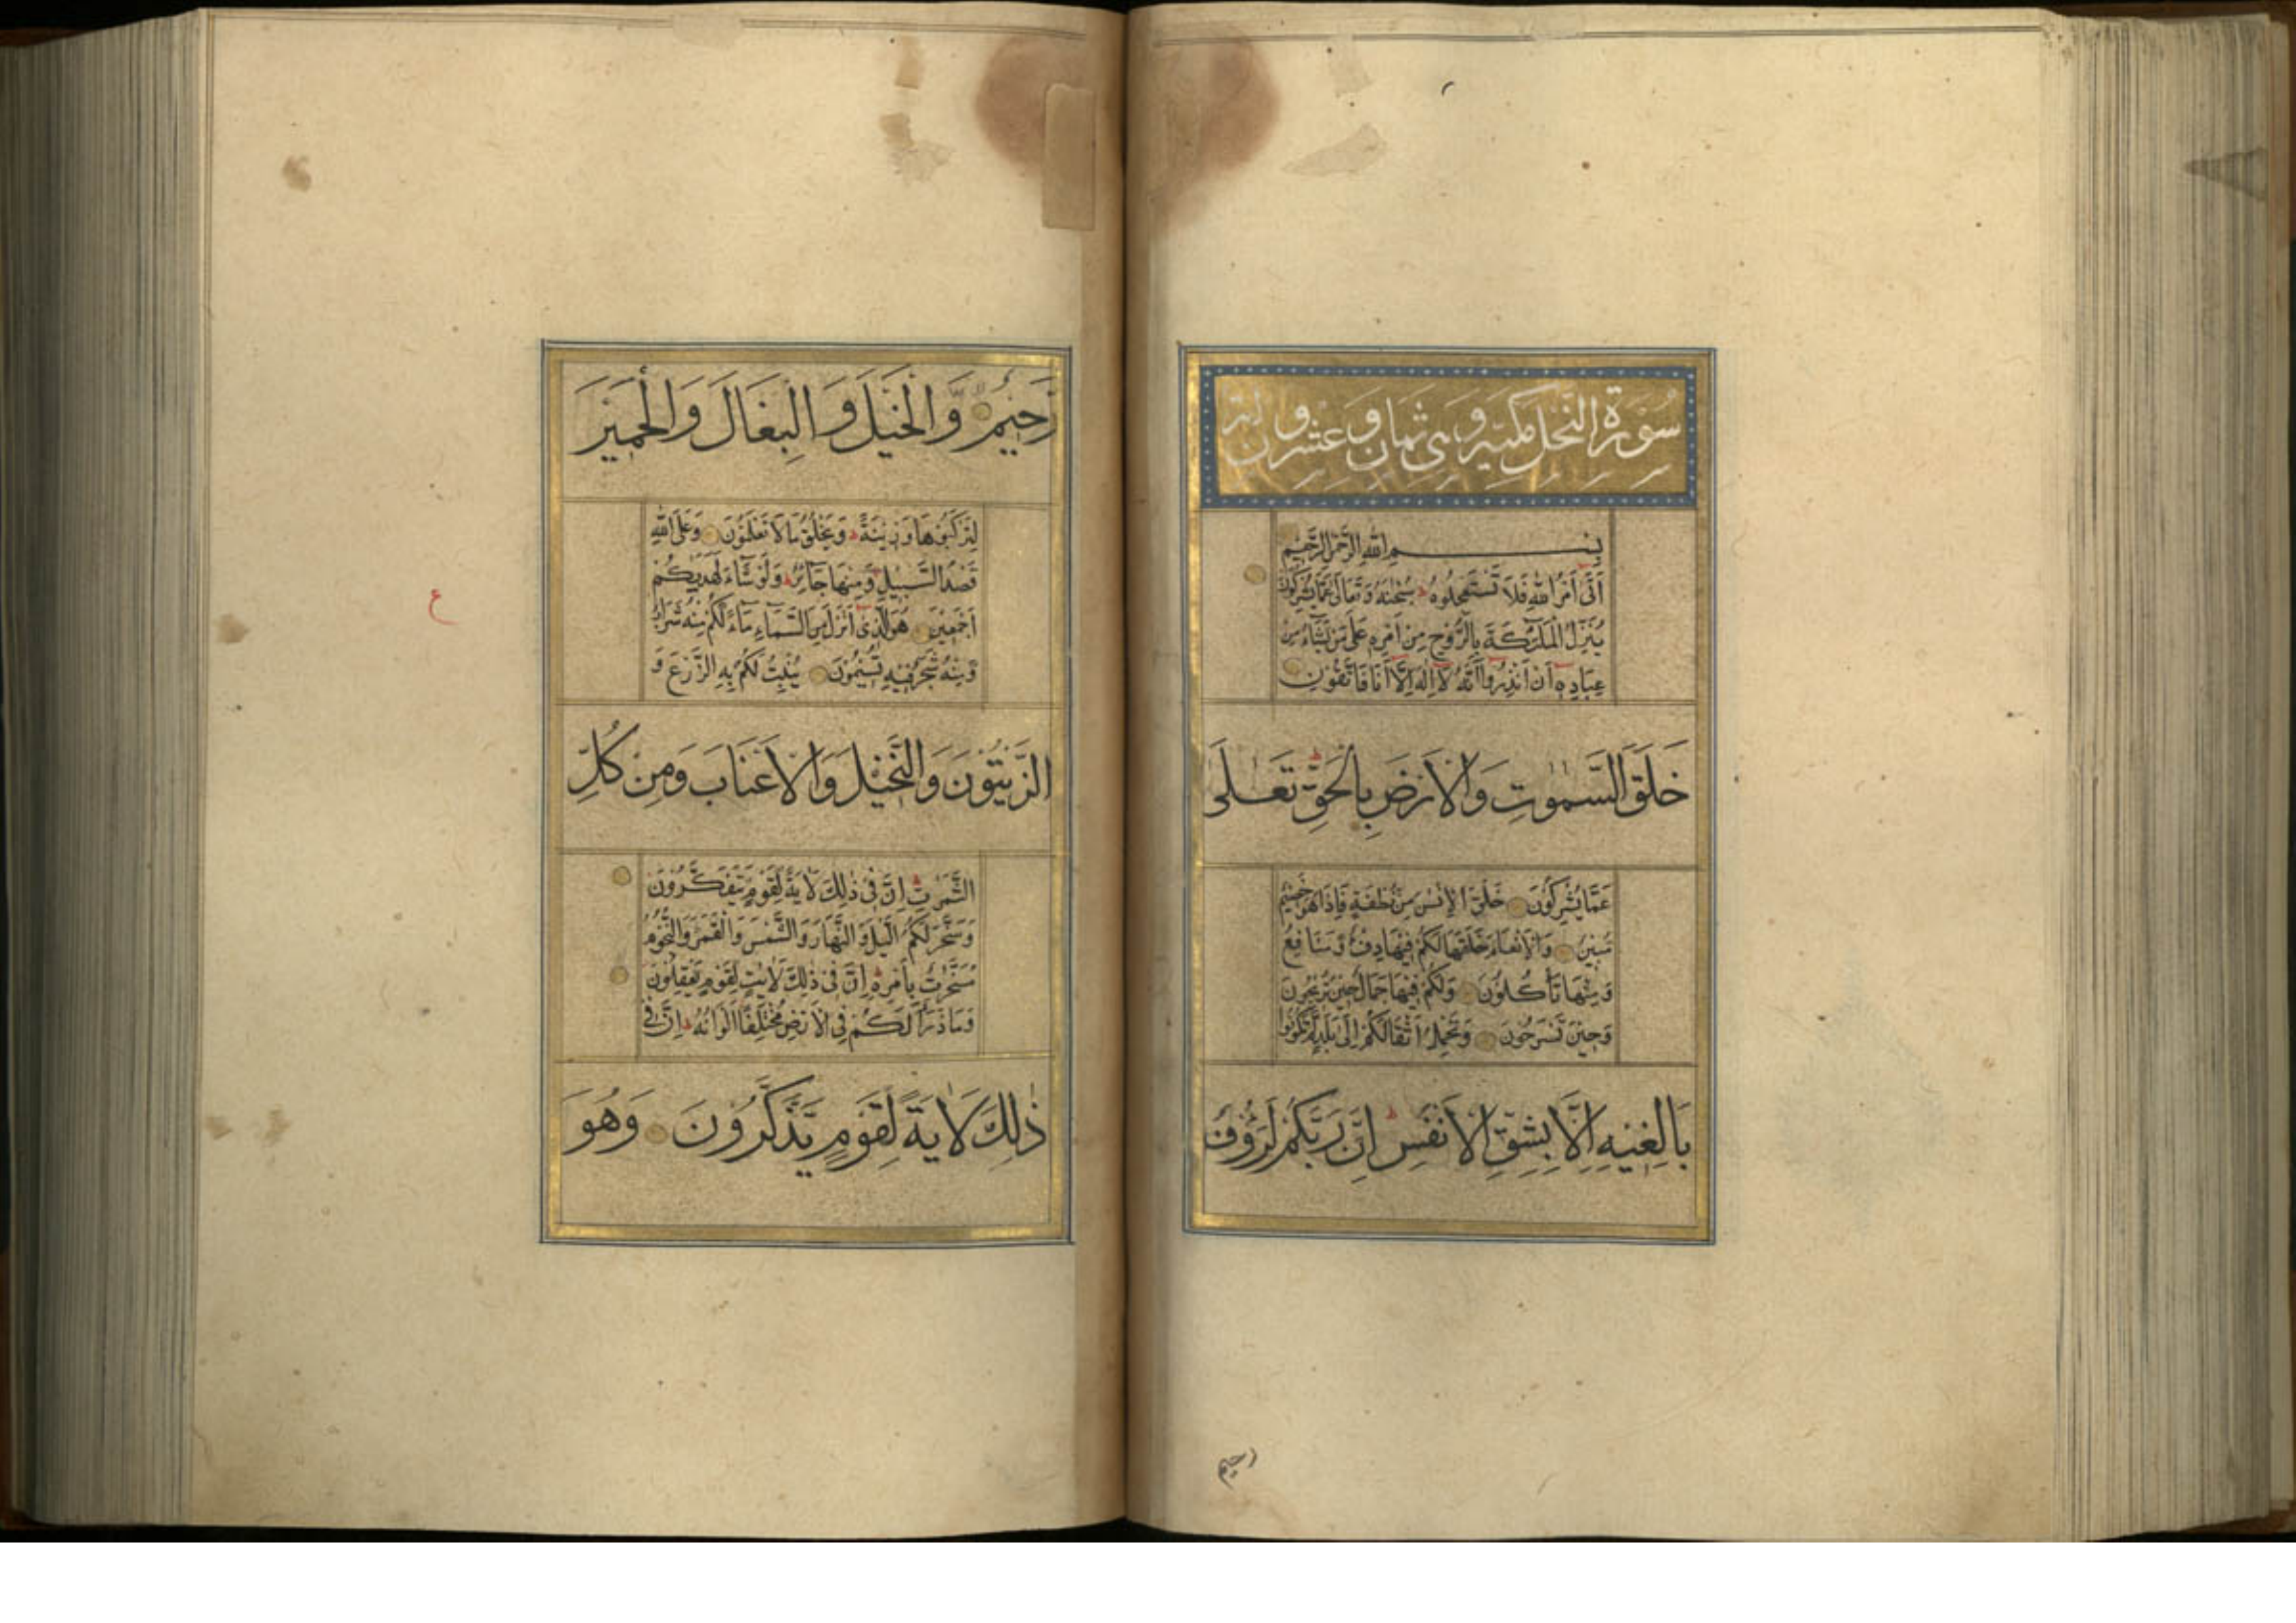 سورة النحل مكية وهي ثمان وعشرون و
بسم الله الرحمن الرحيم
أَتَى أَمْرُ اللهِ فَلَا تَسْتَعْجِلُوهُ سُبْحٰنَهُ وَتَعَالَى عَمَّا يُشْرِكُونَ
يُنَزِّلُ الْمَلٰئِكَةَ بِالرُّوحِ مِنْ أَمْرِهِ عَلَى مَنْ يَشَاءُ مِنْ
عِبَادِهِ أَنْ أَنْذِرُوا أَنَّهُ لَا إِلٰهَ إِلَّا أَنَا فَاتَّقُونِ
خَلَقَ السَّمٰوٰتِ وَالْأَرْضَ بِالْحَقِّ تَعٰلَى
عَمَّا يُشْرِكُونَ خَلَقَ الْإِنْسٰنَ مِنْ نُطْفَةٍ فَإِذَا هُوَ خَصِيمٌ
مُبِينٌ وَالْأَنْعَامَ خَلَقَهَا لَكُمْ فِيهَا دِفْءٌ وَمَنَافِعُ
وَمِنْهَا تَأْكُلُونَ وَلَكُمْ فِيهَا جَمَالٌ حِينَ تُرِيحُونَ
وَحِينَ تَسْرَحُونَ وَتَحْمِلُ أَثْقَالَكُمْ إِلَى بَلَدٍ لَمْ تَكُونُوا
بَالِغِيهِ إِلَّا بِشِقِّ الْأَنْفُسِ إِنَّ رَبَّكُمْ لَرَؤُفٌ
رحيم
رَحِيمٌ وَالْخَيْلَ وَالْبِغَالَ وَالْحَمِيرَ
لِتَرْكَبُوهَا وَزِينَةً وَيَخْلُقُ مَا لَا تَعْلَمُونَ وَعَلَى اللهِ
قَصْدُ السَّبِيلِ وَمِنْهَا جَائِرٌ وَلَوْ شَاءَ لَهَدٰىكُمْ
أَجْمَعِينَ هُوَ الَّذِي أَنْزَلَ مِنَ السَّمَاءِ مَاءً لَكُمْ مِنْهُ شَرَابٌ
وَمِنْهُ شَجَرٌ فِيهِ تُسِيمُونَ يُنْبِتُ لَكُمْ بِهِ الزَّرْعَ وَ
الزَّيْتُونَ وَالنَّخِيلَ وَالْأَعْنَابَ وَمِنْ كُلِّ
الثَّمَرٰتِ إِنَّ فِي ذٰلِكَ لَآيَةً لِقَوْمٍ يَتَفَكَّرُونَ
وَسَخَّرَ لَكُمُ الَّيْلَ وَالنَّهَارَ وَالشَّمْسَ وَالْقَمَرَ وَالنُّجُومُ
مُسَخَّرٰتٌ بِأَمْرِهِ إِنَّ فِي ذٰلِكَ لَآيٰتٍ لِقَوْمٍ يَعْقِلُونَ
وَمَا ذَرَأَ لَكُمْ فِي الْأَرْضِ مُخْتَلِفًا أَلْوَانُهُ إِنَّ فِي
ذٰلِكَ لَآيَةً لِقَوْمٍ يَذَّكَّرُونَ وَهُوَ
ع